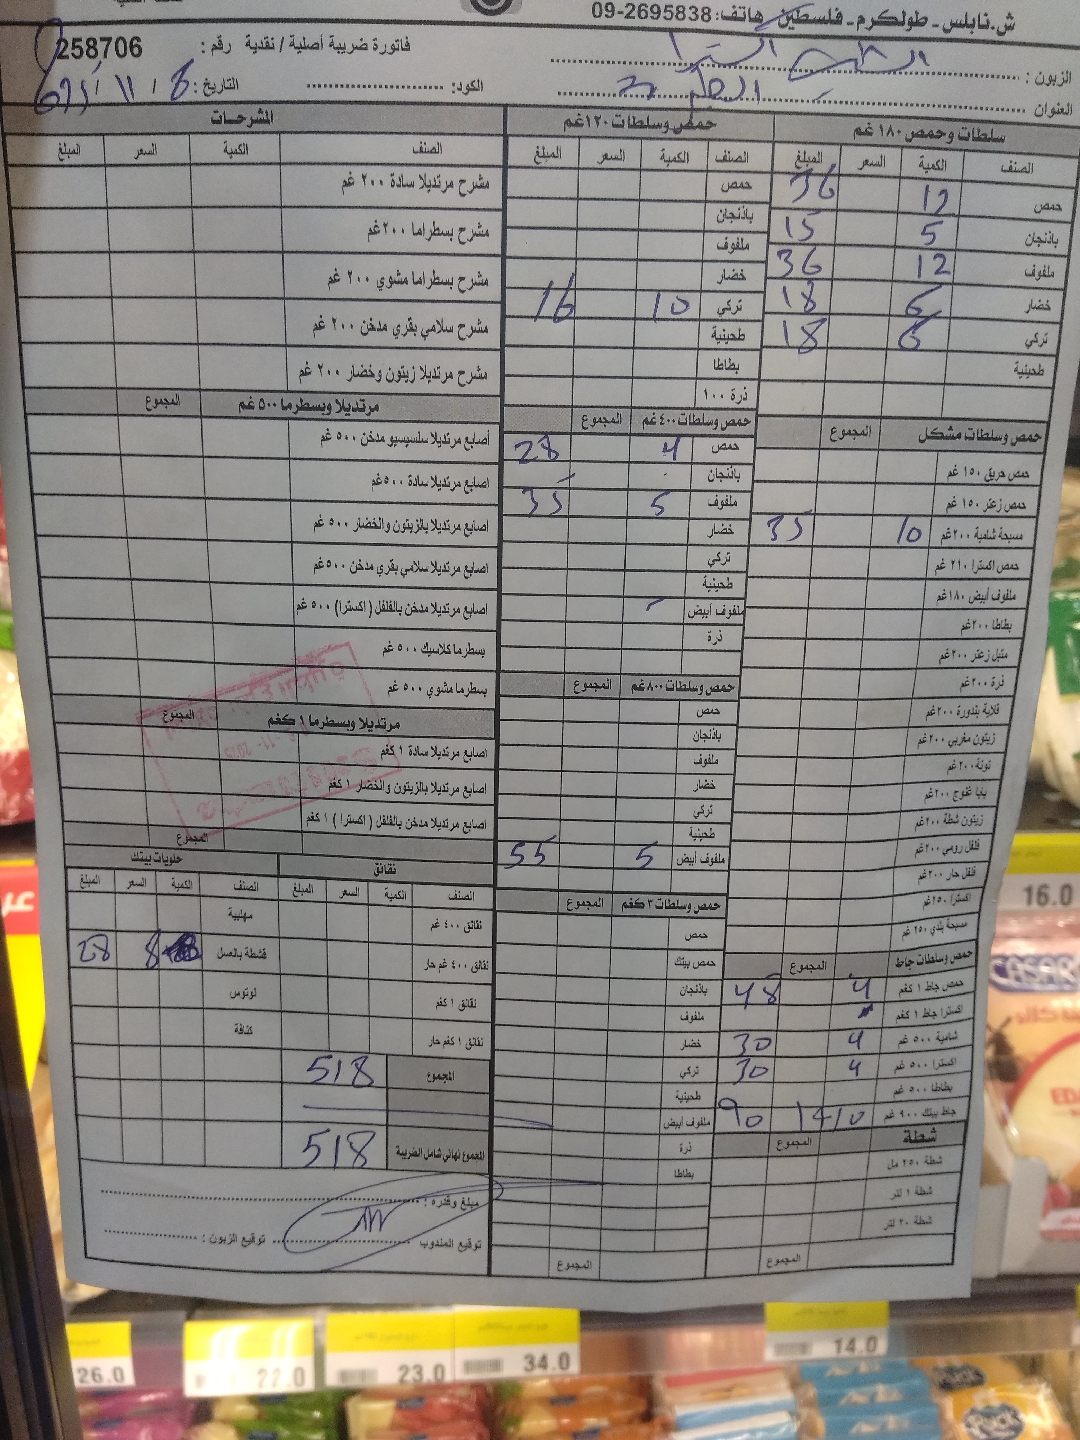 ش.نابلس - طولكرم - فلسطين هاتف: 09-2695838
فاتورة ضريبة أصلية / نقدية رقم : 258706
الزبون :
التاريخ: 8 / 11 / الكود:
العنوان
سلطات وحمص ١٨٠ غم
الصنف الكمية السعر المبلغ
حمص 12 36
باذنجان 5 15
ملفوف 12 36
خضار 6 18
تركي 6 18
طحينية
حمص وسلطات مشكل المجموع
حمص حريق ١٥٠ غم
حمص زعتر ١٥٠ غم
مسبحة شامية ٢٠٠غم 10 35
حمص اكسترا ٢١٠ غم
ملفوف أبيض ١٨٠غم
بطاطا ٢٠٠غم
متبل زعتر ٢٠٠غم
ذرة ٢٠٠غم
قلاية بندورة ٢٠٠غم
زيتون مغربي ٢٠٠غم
تونة ٢٠٠غم
بابا غنوج ٢٠٠غم
زيتون شطة ٢٠٠غم
فلفل رومي ٢٠٠غم
فلفل حار ٢٠٠غم
اكسترا ٢٥٠غم
مسبحة بلدي ٢٥٠ غم
حمص وسلطات جاط المجموع
حمص جاط ١ كغم 4 48
اكسترا جاط ١ كغم
شامية ٥٠٠ غم 4 30
اكسترا ٥٠٠ غم 4 30
بطاطا ٥٠٠ غم
جاط بيتك ٩٠٠ غم 90
شطة المجموع
شطة ٢٥٠ مل
شطة ١ لتر
شطة ٢٠ لتر
المجموع
حمص وسلطات ١٢٠غم
الصنف الكمية السعر المبلغ
حمص
باذنجان
ملفوف
خضار
تركي 10 16
طحينية
بطاطا
ذرة ١٠٠
حمص وسلطات ٤٠٠ غم المجموع
حمص 4 28
باذنجان
ملفوف 5 35
خضار
تركي
طحينية
ملفوف أبيض
ذرة
حمص وسلطات ٨٠٠غم المجموع
حمص
باذنجان
ملفوف
خضار
تركي
طحينية
ملفوف أبيض 5 55
حمص وسلطات ٣ كغم المجموع
حمص
حمص بيتك
باذنجان
ملفوف
خضار
تركي
طحينية
ملفوف أبيض
ذرة
بطاطا
المجموع
المشرحات
الصنف الكمية السعر المبلغ
مشرح مرتديلا سادة ٢٠٠ غم
مشرح بسطراما ٢٠٠غم
مشرح بسطراما مشوي ٢٠٠ غم
مشرح سلامي بقري مدخن ٢٠٠ غم
مشرح مرتديلا زيتون وخضار ٢٠٠ غم
مرتديلا وبسطرما ٥٠٠ غم المجموع
أصابع مرتديلا سلسيسيو مدخن ٥٠٠ غم
اصابع مرتديلا سادة ٥٠٠غم
اصابع مرتديلا بالزيتون والخضار ٥٠٠ غم
اصابع مرتديلا سلامي بقري مدخن ٥٠٠غم
اصابع مرتديلا مدخن بالفلفل ( اكسترا ) ٥٠٠ غم
بسطرما كلاسيك ٥٠٠ غم
بسطرما مشوي ٥٠٠ غم
مرتديلا وبسطرما ١ كغم المجموع
اصابع مرتديلا سادة ١ كغم
اصابع مرتديلا بالزيتون والخضار ١ كغم
اصابع مرتديلا مدخن بالفلفل ( اكسترا ) ١ كغم
المجموع
نقانق
الصنف الكمية السعر المبلغ
نقانق ٤٠٠ غم
نقانق ٤٠٠ غم حار
نقانق ١ كغم
نقانق ١ كغم حار
حلويات بيتك
الصنف الكمية السعر المبلغ
مهلبية
قشطة بالعسل 8 28
لوتوس
كنافة
المجموع 518
المجموع نهائي شامل الضريبة 518
مبلغ وقدره :
توقيع المندوب
توقيع الزبون :
16.0
26.0
22.0
23.0
34.0
14.0
Puck